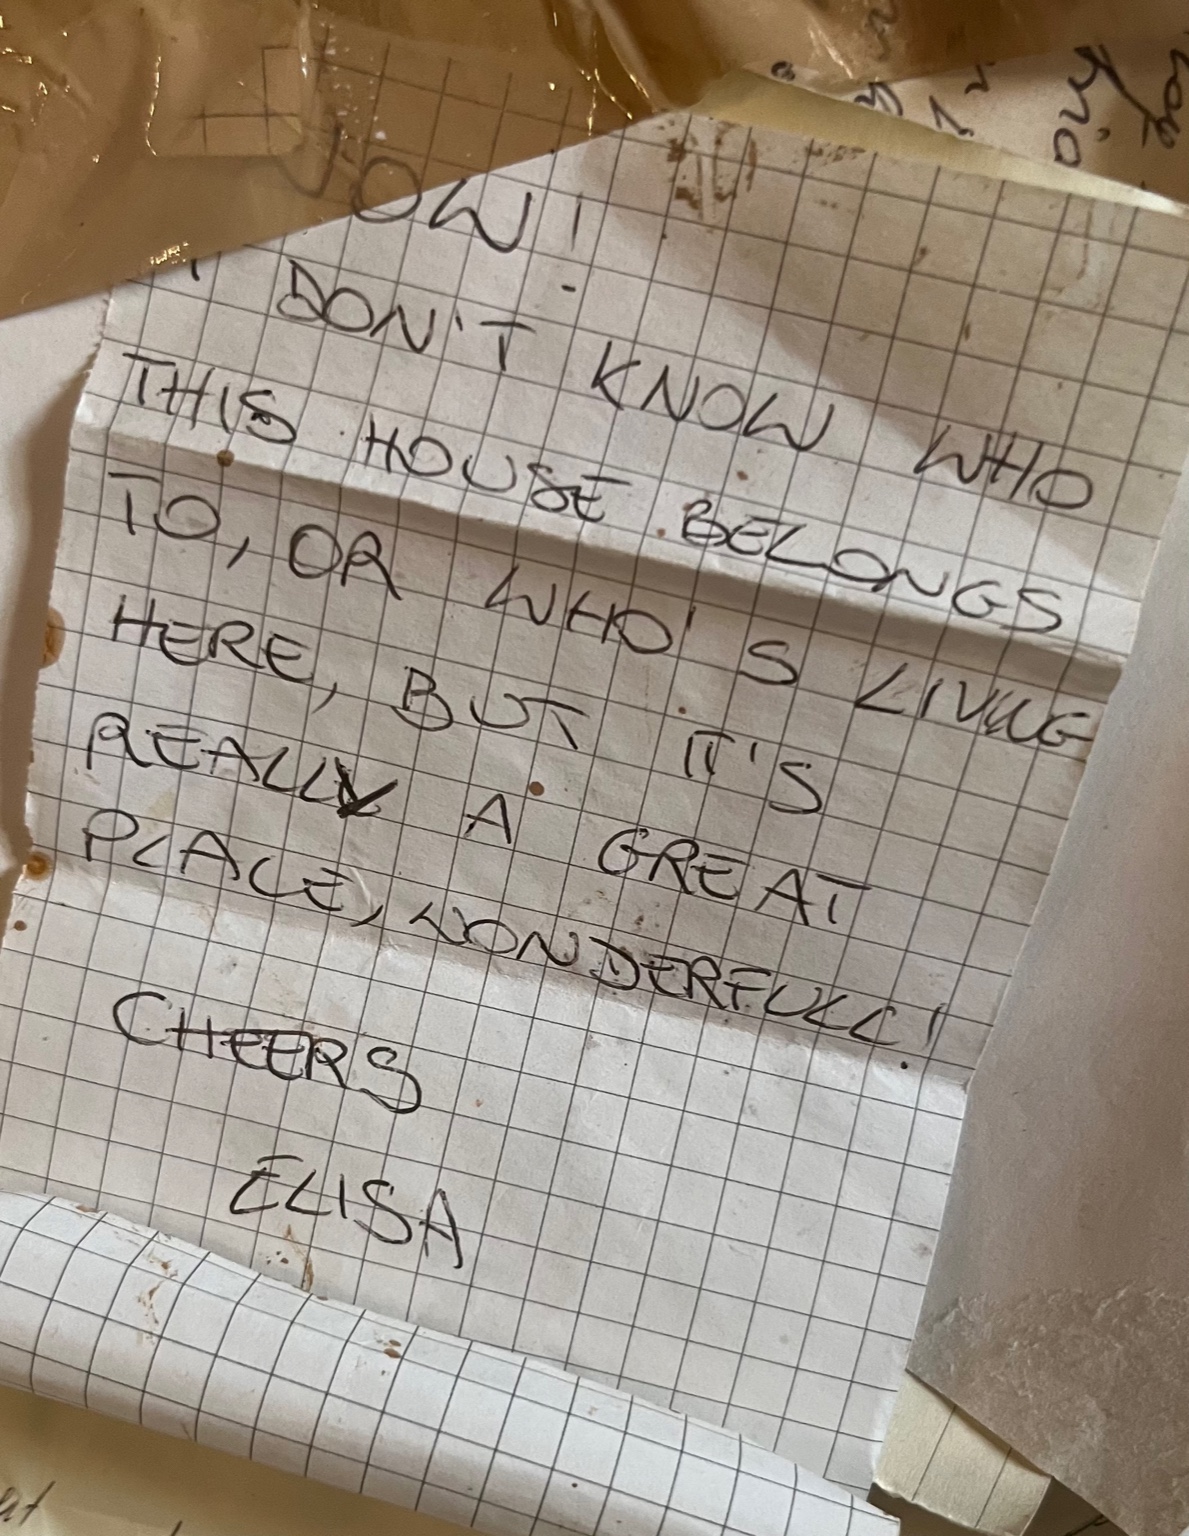 WOW!
I DON'T KNOW WHO
THIS HOUSE BELONGS
TO, OR WHO'S LIVING
HERE, BUT IT'S
REALLY A GREAT
PLACE, WONDERFULL!
CHEERS
ELISA